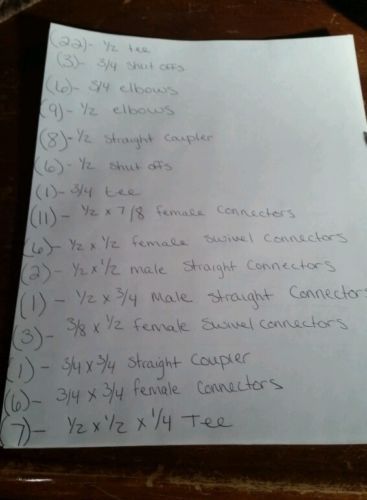 (22)- 1/2 tee
(3)- 3/4 shut offs
(6)- 3/4 elbows
(9)- 1/2 elbows
(8)- 1/2 straight coupler
(6)- 1/2 shut offs
(1)- 3/4 tee
(11)- 1/2 x 7/8 female connectors
(6)- 1/2 x 1/2 female swivel connectors
(2)- 1/2 x 1/2 male straight connectors
(1)- 1/2 x 3/4 male straight connectors
(3)- 3/8 x 1/2 female swivel connectors
(1)- 3/4 x 3/4 straight coupler
(6)- 3/4 x 3/4 female connectors
(7)- 1/2 x 1/2 x 1/4 Tee